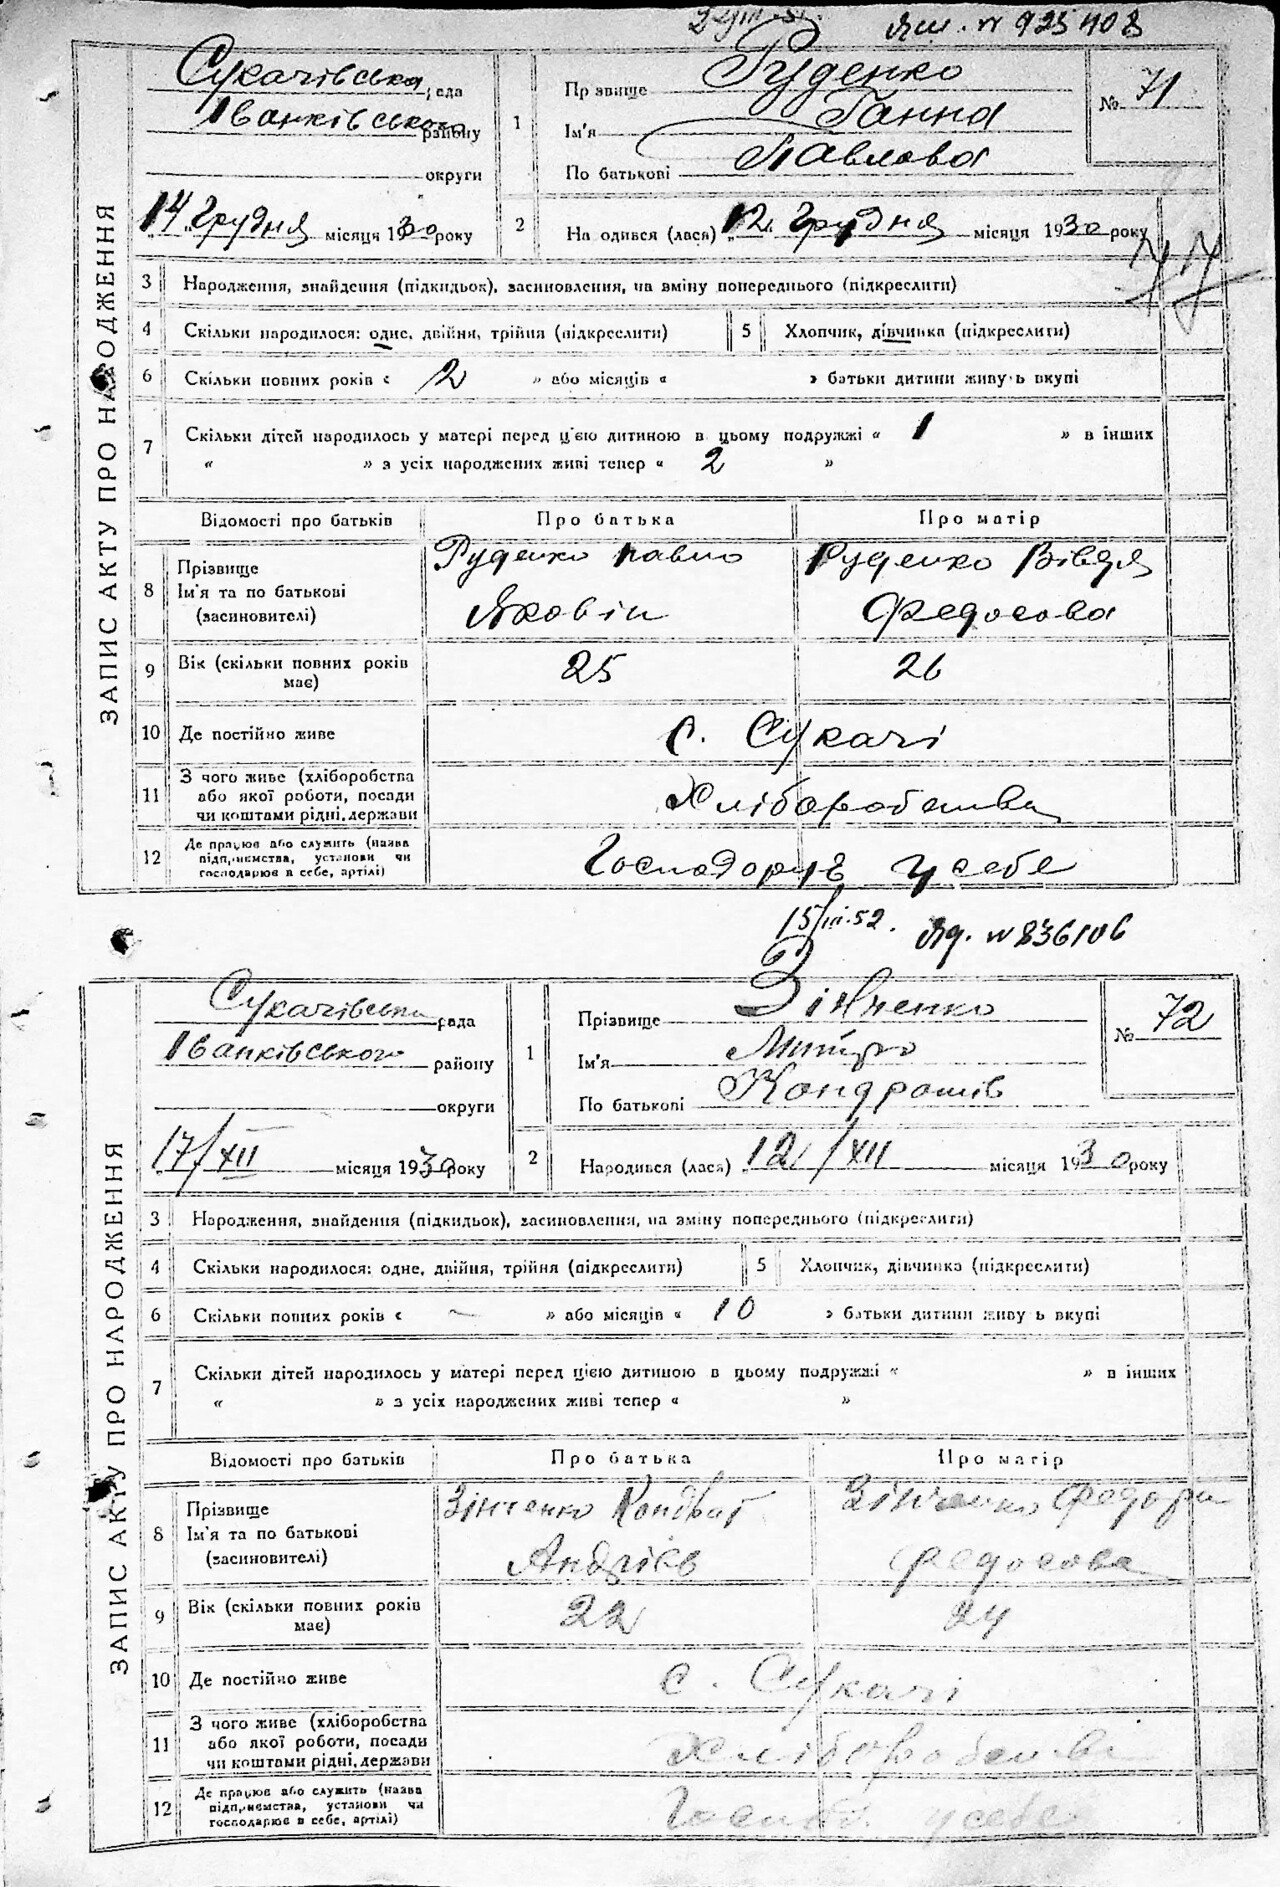 Яш. N 925408
ЗАПИС АКТУ ПРО НАРОДЖЕННЯ
Сукачівська рада
Іванківського району
округи
14 Грудня місяця 1930 року
1
Прізвище Руденко
Ім'я Ганна
По батькові Павлова
№ 71
2
Народився (лася) „12" Грудня місяця 1930 року
3 Народження, знайдення (підкидьок), засиновлення, на зміну попереднього (підкреслити)
4 Скільки народилося: одне, двійня, трійня (підкреслити)
5 Хлопчик, дівчинка (підкреслити)
6 Скільки повних років « 2 » або місяців « » батьки дитини живуть вкупі
7 Скільки дітей народилось у матері перед цією дитиною в цьому подружжі « 1 » в інших
« » з усіх народжених живі тепер « 2 »
Відомості про батьків Про батька Про матір
8 Прізвище
Ім'я та по батькові
(засиновителі)
Руденко Павло
Яковів
Руденко Вівдя
Федосова
9 Вік (скільки повних років
має)
25 26
10 Де постійно живе с. Сукачі
11 З чого живе (хліборобства
або якої роботи, посади
чи коштами рідні, держави
Хліборобства
12 Де працює або служить (назва
підприємства, установи чи
господарює в себе, артілі)
Господорує у себе
15/III.52. Яд. N 836106
ЗАПИС АКТУ ПРО НАРОДЖЕННЯ
Сукачівська рада
Іванківського району
округи
17/XII місяця 1930 року
1
Прізвище Зінченко
Ім'я Митро
По батькові Кондратів
№ 72
2
Народився (лася) 12/XII місяця 1930 року
3 Народження, знайдення (підкидьок), засиновлення, на зміну попереднього (підкреслити)
4 Скільки народилося: одне, двійня, трійня (підкреслити)
5 Хлопчик, дівчинка (підкреслити)
6 Скільки повних років « — » або місяців « 10 » батьки дитини живуть вкупі
7 Скільки дітей народилось у матері перед цією дитиною в цьому подружжі « » в інших
« » з усіх народжених живі тепер « »
Відомості про батьків Про батька Про матір
8 Прізвище
Ім'я та по батькові
(засиновителі)
Зінченко Кондрат
Андріїв
Зінченко Федора
Федосова
9 Вік (скільки повних років
має)
22 24
10 Де постійно живе с. Сукачі
11 З чого живе (хліборобства
або якої роботи, посади
чи коштами рідні, держави
Хліборобстві
12 Де працює або служить (назва
підприємства, установи чи
господарює в себе, артілі)
у себе